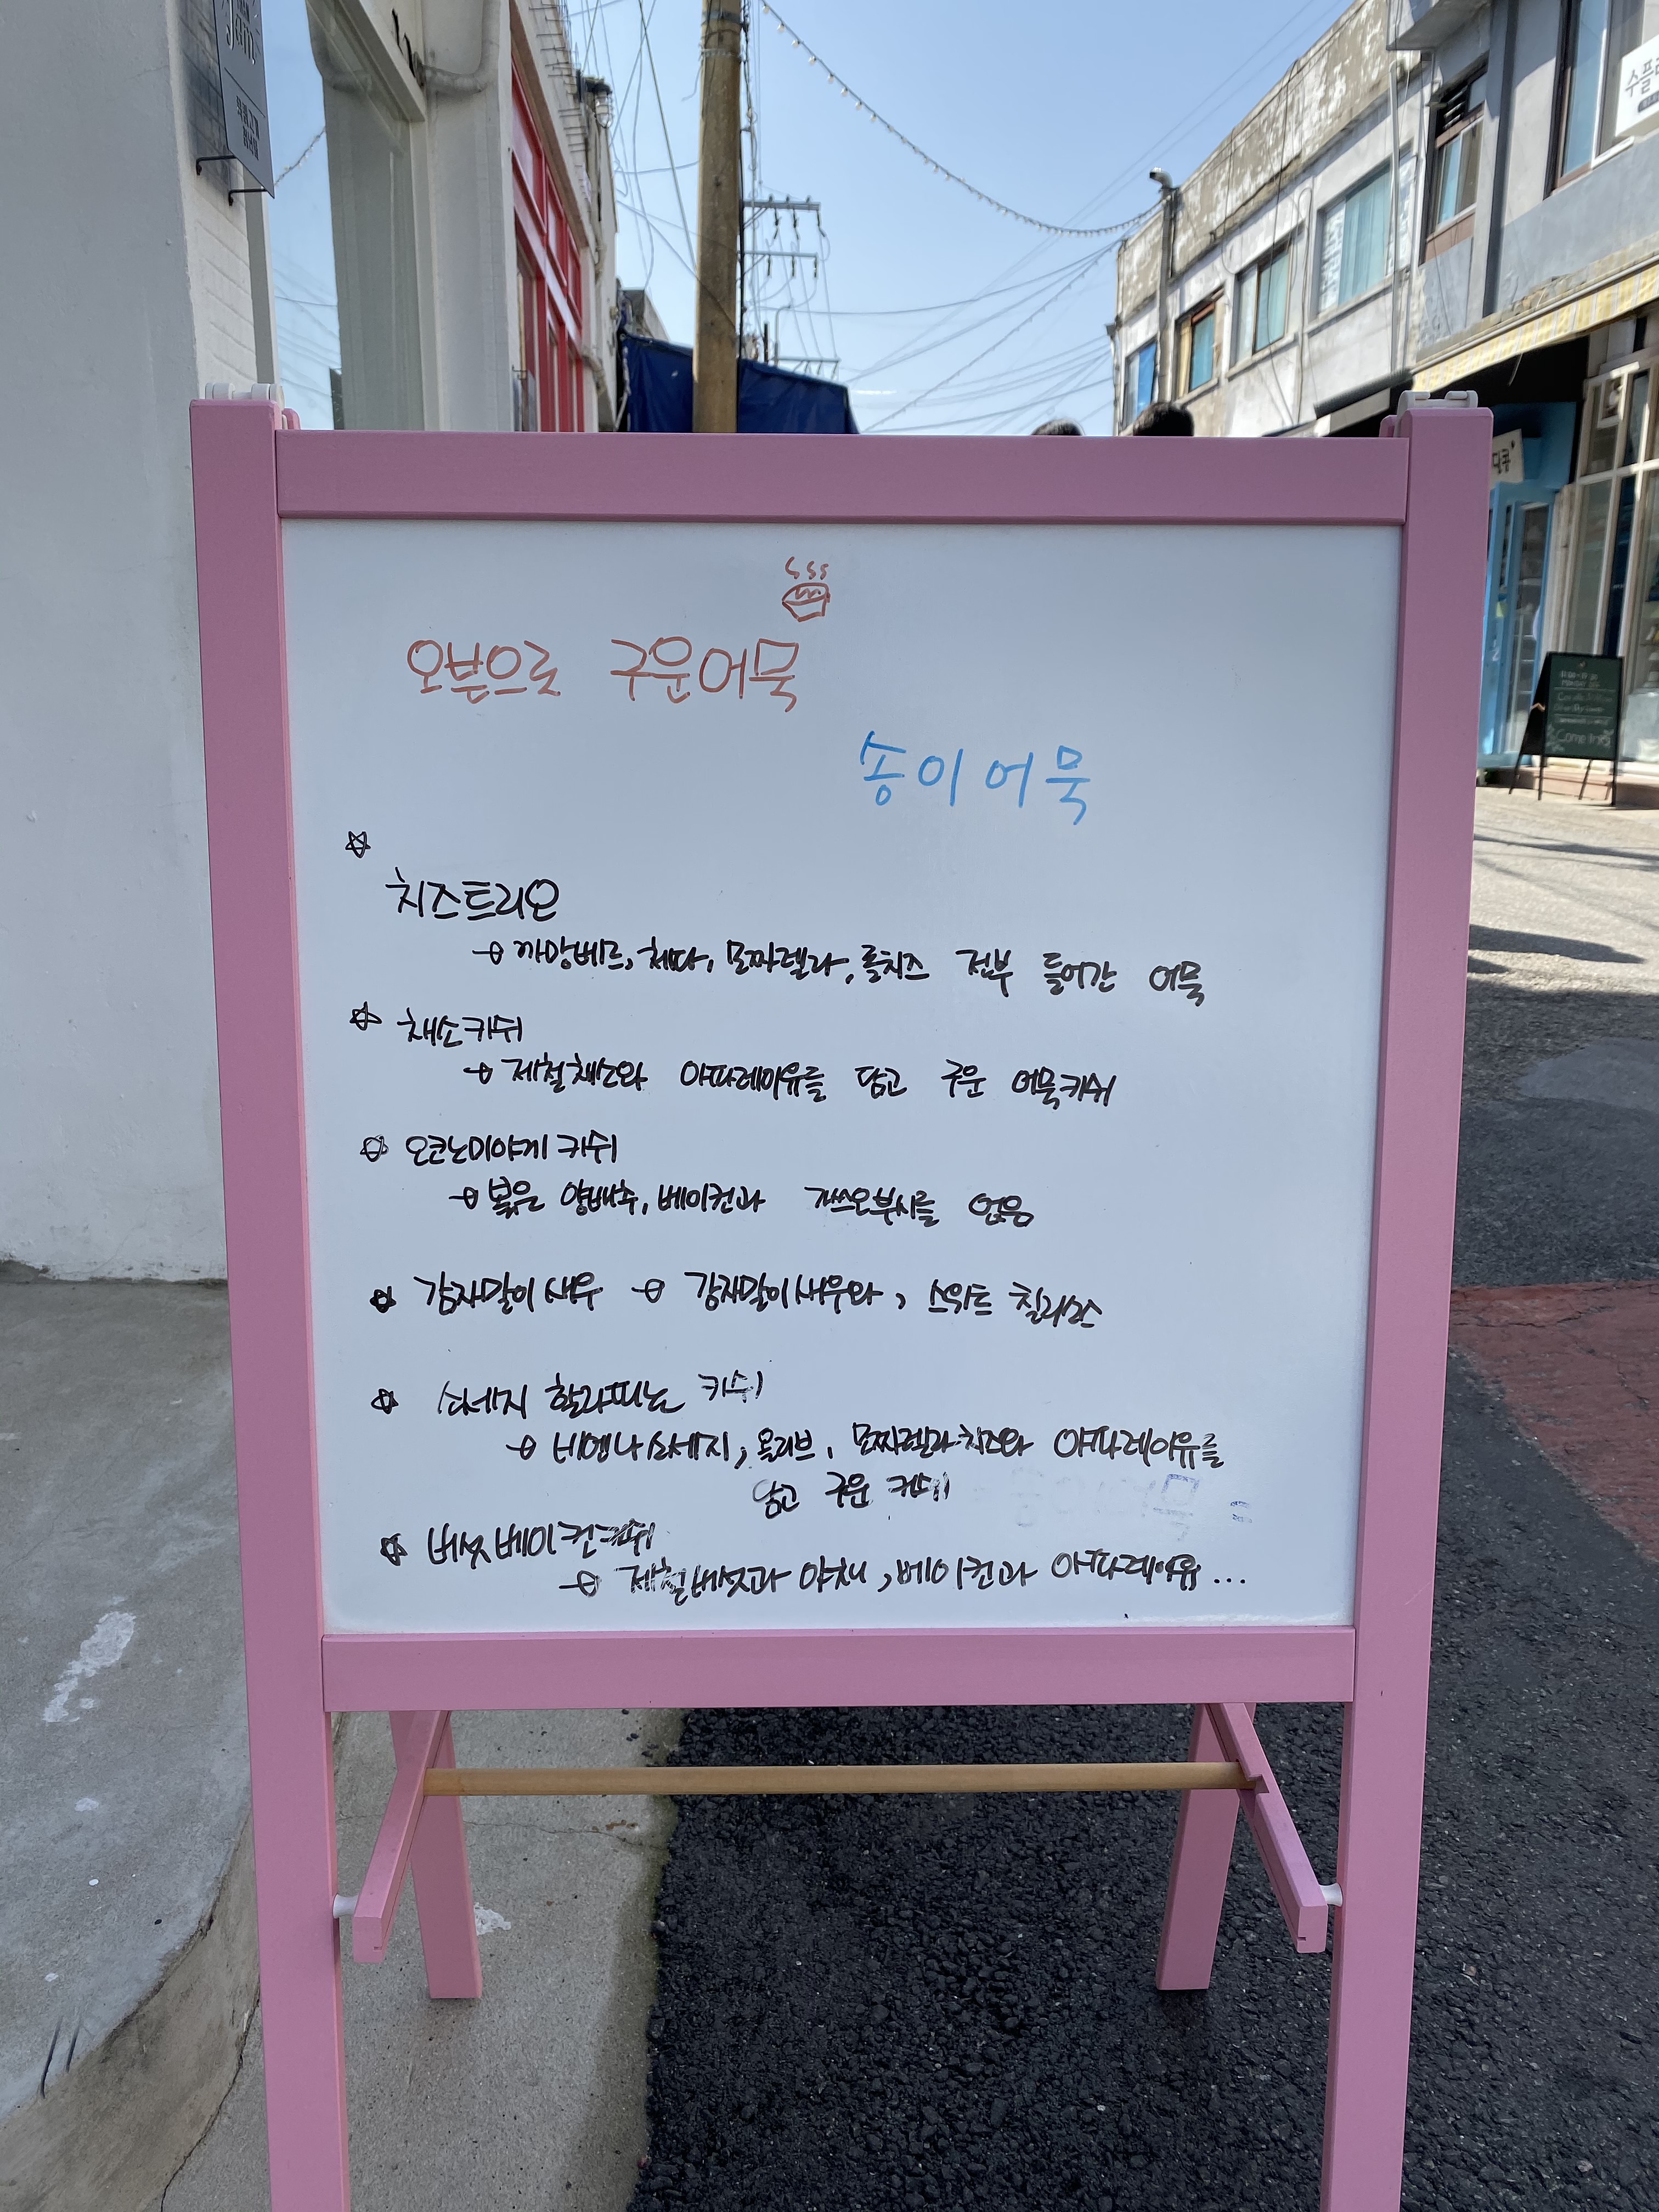 오븐으로 구운어묵
송이어묵
☆
치즈트리오
→ 까망베르, 체다, 모짜렐라, 롤치즈 전부 들어간 어묵
☆ 채소키쉬
→ 제철채소와 아파레이유를 담고 구운 어묵키쉬
☆ 오코노미야끼 키쉬
→ 볶은 양배추, 베이컨과 가쓰오부시를 얹음
☆ 감자말이새우 → 감자말이새우와, 스위트 칠리소스
☆ 소세지 할라피뇨 키쉬
→ 비엔나소세지, 올리브, 모짜렐라치즈와 아파레이유를
담고 구운 키쉬
☆ 버섯베이컨키쉬
→ 제철버섯과 야채, 베이컨과 아파레이유...
수플
Come In